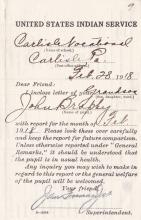 9
UNITED STATES INDIAN SERVICE
Carlisle Vocational
(Name of school)
Carlisle Pa.
Feb. 28, 1918
Dear Friend:
I inclose letter of your grandson
John B.
with report for the month of Feb.
1918. Please look these over carefully
and keep the report for future comparison.
Unless otherwise remarked under "General
Remarks," it should be understood that
the pupil is in usual health.
Any inquiry you may wish to make in
regard to this report or the general welfare
of the pupil will be welcomed.
Your friend,
Superintendent.